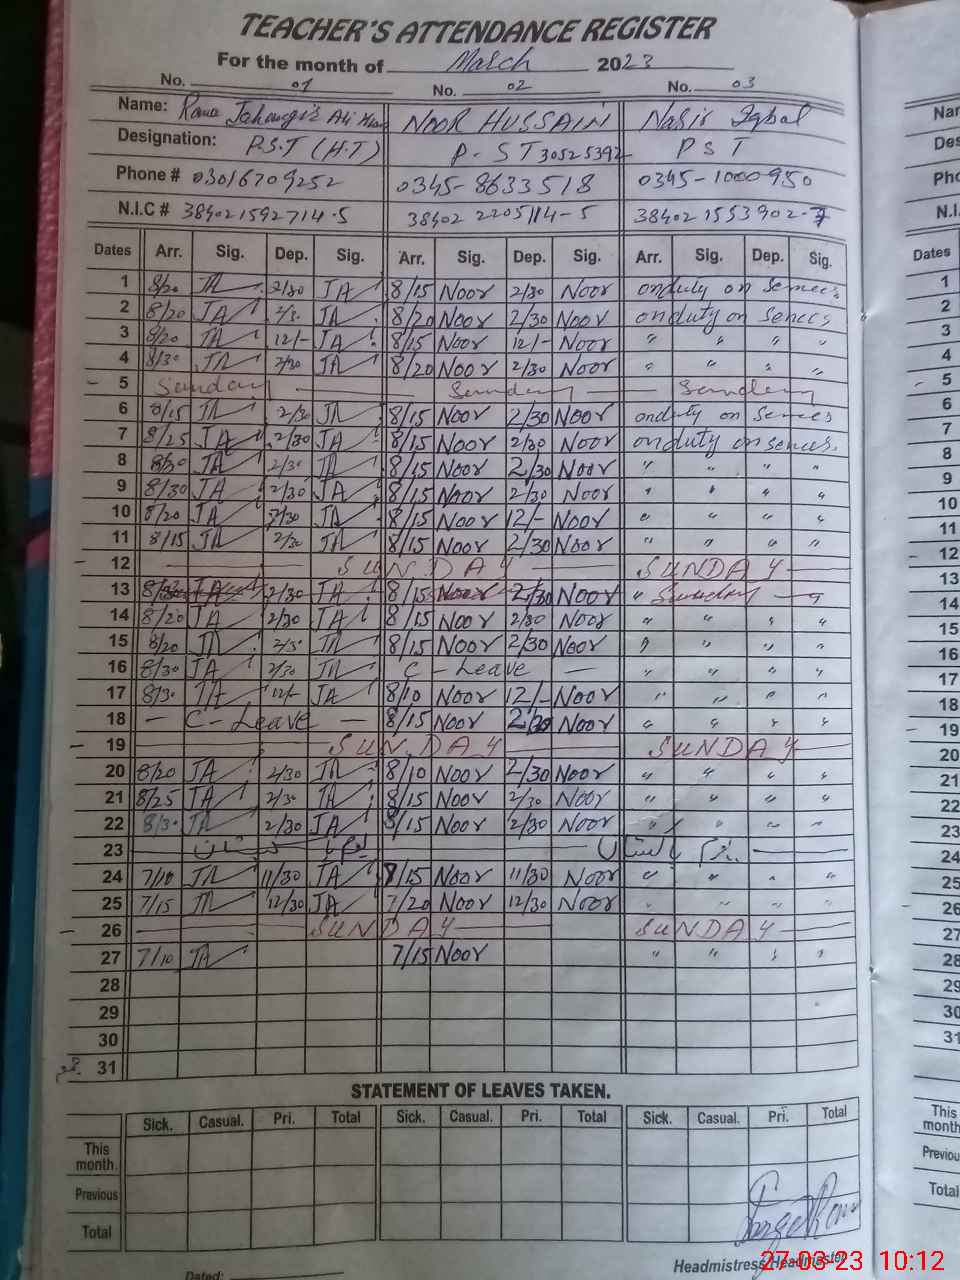 TEACHER'S ATTENDANCE REGISTER
For the month of March 2023
No. 01 No. 02 No. 03
Name: Rana Jahangir Ali NOOR HUSSAIN Nasir Iqbal
Designation: P.S.T (H.T) P. ST 30525392 PST
Phone # 03016709252 0345-8633518 0345-1000950
N.I.C # 384021592714-5 38402 2205114-5 384021553902-7
Dates Arr. Sig. Dep. Sig. Arr. Sig. Dep. Sig. Arr. Sig. Dep. Sig.
1 8/20 JA 2/30 JA 8/15 Noor 2/30 Noor onduty on
2 8/20 JA 2/30 JA 8/20 Noor 2/30 Noor onduty on
3 8/20 JA 12/- JA 8/15 Noor 12/- Noor " " " "
4 8/30 JA 2/30 JA 8/20 Noor 2/30 Noor " " " "
5 Sunday Sunday Sunday
6 8/15 JA 2/30 JA 8/15 Noor 2/30 Noor onduty on
7 8/25 JA 2/30 JA 8/15 Noor 2/30 Noor onduty on
8 JA 2/30 JA 8/15 Noor 2/30 Noor " " " "
9 8/30 JA 2/30 JA 8/15 Noor 2/30 Noor " " " "
10 8/20 JA 2/30 JA 8/15 Noor 12/- Noor " " " "
11 8/15 JA 2/30 JA 8/15 Noor 2/30 Noor " " " "
12 SUNDAY SUNDAY
13 JA 2/30 JA 8/15 Noor 2/30 Noor " Sunday "
14 8/20 JA 2/30 JA 8/15 Noor 2/30 Noor " " " "
15 8/20 JA 2/30 JA 8/15 Noor 2/30 Noor " " " "
16 8/30 JA 2/30 JA C - Leave " " " "
17 8/30 JA 12/- JA 8/10 Noor 12/- Noor " " " "
18 C-Leave 8/15 Noor 2/30 Noor " " " "
19 SUNDAY SUNDAY
20 8/20 JA 2/30 JA 8/10 Noor 2/30 Noor " " " "
21 8/25 JA 2/30 JA 8/15 Noor 2/30 Noor " " " "
22 8/30 JA 2/30 JA 8/15 Noor 2/30 Noor " " " "
23 یوم پاکستان یوم پاکستان
24 7/10 JA 11/30 JA 7/15 Noor 11/30 Noor " " " "
25 7/15 JA 12/30 JA 7/20 Noor 12/30 Noor " " " "
26 SUNDAY SUNDAY
27 7/10 JA 7/15 Noor " " " "
28
29
30
31
STATEMENT OF LEAVES TAKEN.
Sick. Casual. Pri. Total Sick. Casual. Pri. Total Sick. Casual. Pri. Total
This month.
Previous
Total
Headmistress/Headmaster
Dated:
27-03-23 10:12
Dates
1
2
3
4
5
6
7
8
9
10
11
12
13
14
15
16
17
18
19
20
21
22
23
24
25
26
27
28
29
30
31
This month
Previous
Total